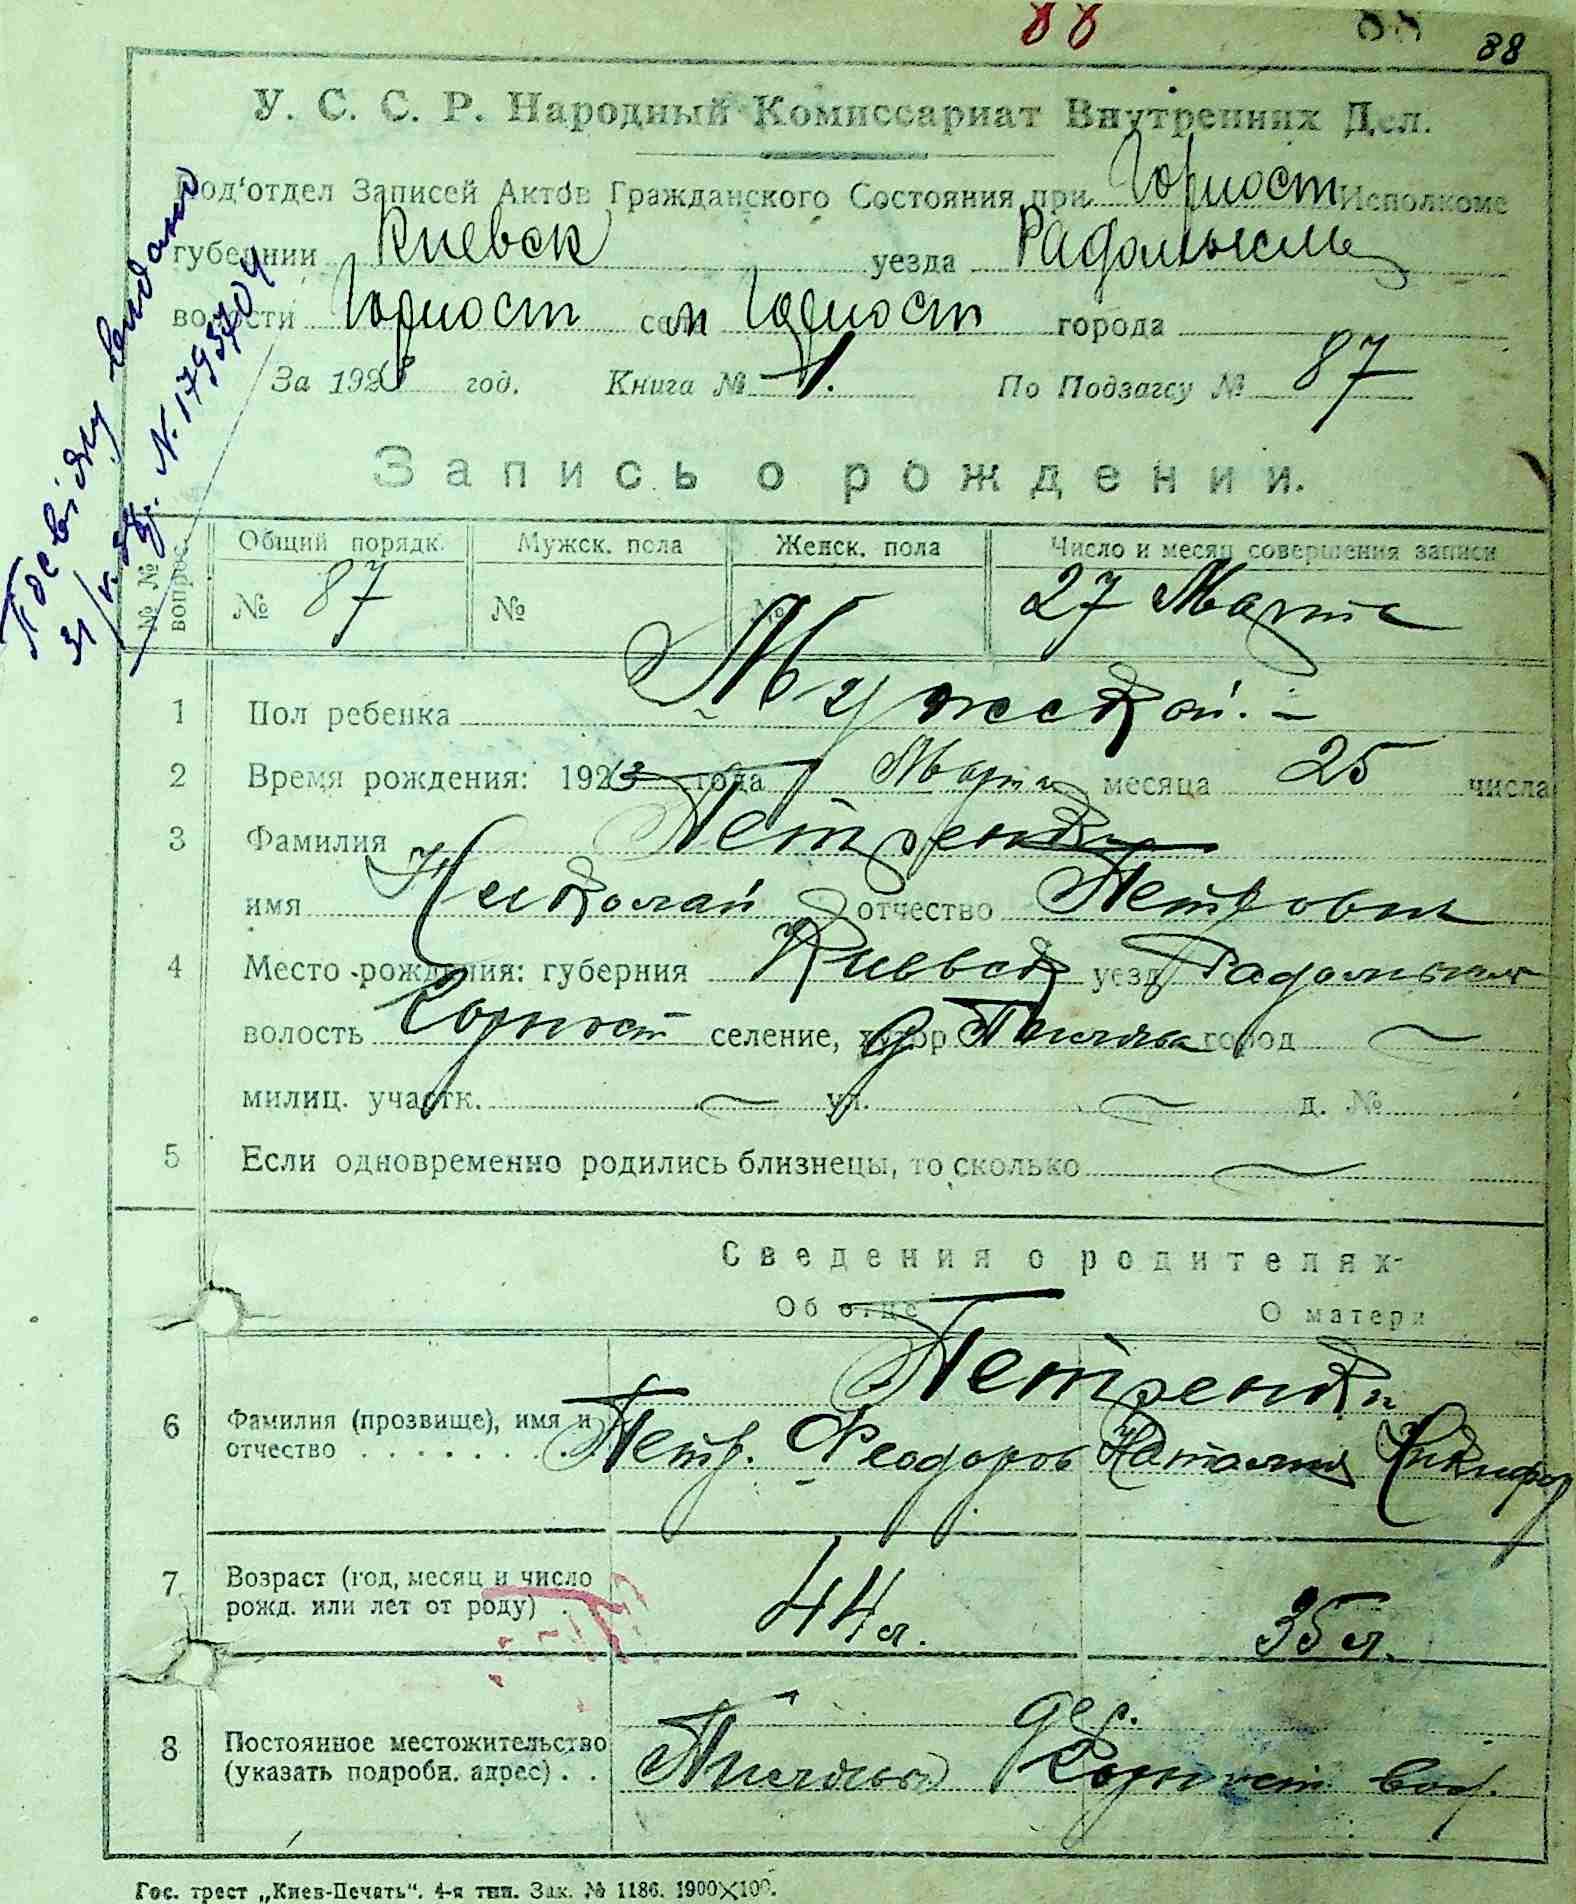 88 88 88
У. С. С. Р. Народный Комиссариат Внутренних Дел.
Под'отдел Записей Актов Гражданского Состояния при Горност Исполкоме
губернии Киевск уезда Радомысль
волости Горност села м Горност города
За 1923 год. Книга № 1. По Подзагсу № 87
Запись о рождении.
№ № вопрос. Общий порядк. Мужск. пола Женск. пола Число и месяц совершения записи
№ 87 № № 27 Марта
1 Пол ребенка Мужской. –
2 Время рождения: 1923 года Марта месяца 25 числа
3 Фамилия Петренко
имя Николай отчество Петрович
4 Место рождения: губерния Киевск уезд Радомысл
волость Горност селение, хутор город
милиц. участк. ул. д. №
5 Если одновременно родились близнецы, то сколько
Сведения о родителях
Об отце О матери
Петренки
6 Фамилия (прозвище), имя и Петр. Феодоров Наталия Никифор
отчество . . . . . . . .
7 Возраст (год, месяц и число 44 л. 35 л.
рожд. или лет от роду) .
8 Постоянное местожительство дер.
(указать подробн. адрес) . . Горност вол.
Гос. трест „Киев-Печать“. 4-я тип. Зак. № 1186. 1900×100.
видано
N. 179570